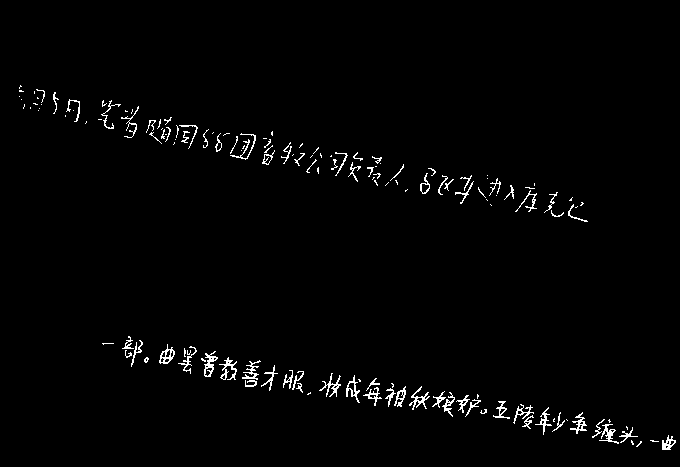 月5日,笔者随同88团畜牧公司负责人,驱车进入库克
一部。曲罢曾教善才服,妆成每被秋娘妒。五陵年少争缠头,一曲